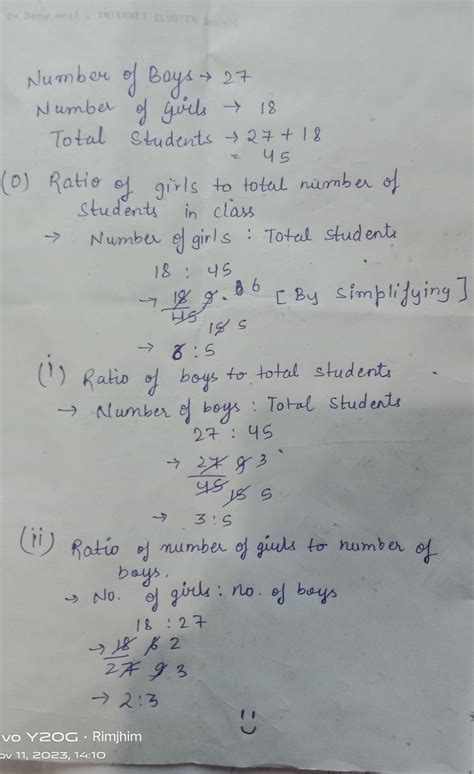 INTERNET CLUSTER
Number of Boys → 27
Number of Girls → 18
Total Students → 27 + 18
= 45
(0) Ratio of girls to total number of
Students in class
→ Number of girls : Total students
18 : 45
→ 18 9. 8 6 [By simplifying]
45
15 5
→ 6:5
(i) Ratio of boys to total students
→ Number of boys : Total Students
27 : 45
→ 27 9 3
45 15 5
→ 3:5
(ii) Ratio of number of girls to number of
boys.
→ No. of girls : no. of boys
18 : 27
→ 18 6 2
27 9 3
→ 2:3
vo Y20G · Rimjhim
ov 11, 2023, 14:10